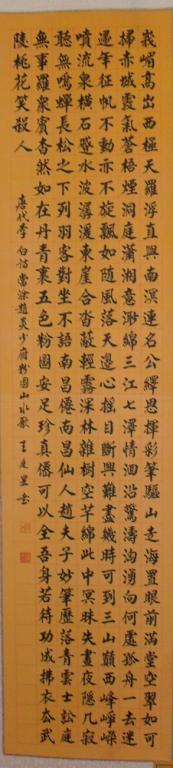 峩嵋高出西極天羅浮直與南溟連名公繹思揮彩筆驅山走海置眼前滿堂空翠如可
掃赤城霞氣蒼梧煙洞庭瀟湘意渺綿三江七澤情洄沿驚濤洶湧向何處孤舟一去迷
歸年征帆不動亦不旋飄如隨風落天邊心搖目斷興難盡幾時可到三山巔西峰崢嶸
噴流泉橫石蹙水波潺湲東崖合沓蔽輕霧深林雜樹空芊綿此中冥昧失晝夜隱几寂
聽無鳴蟬長松之下列羽客對坐不語南昌僊南昌仙人趙夫子妙筆歷落青雲士訟庭
無事羅眾賓杳然如在丹青裏五色粉圖安足珍真僊可以全吾身若待功成拂衣去武
陵桃花笑殺人
唐代李白詩當塗趙炎少府粉圖山水歌 王書